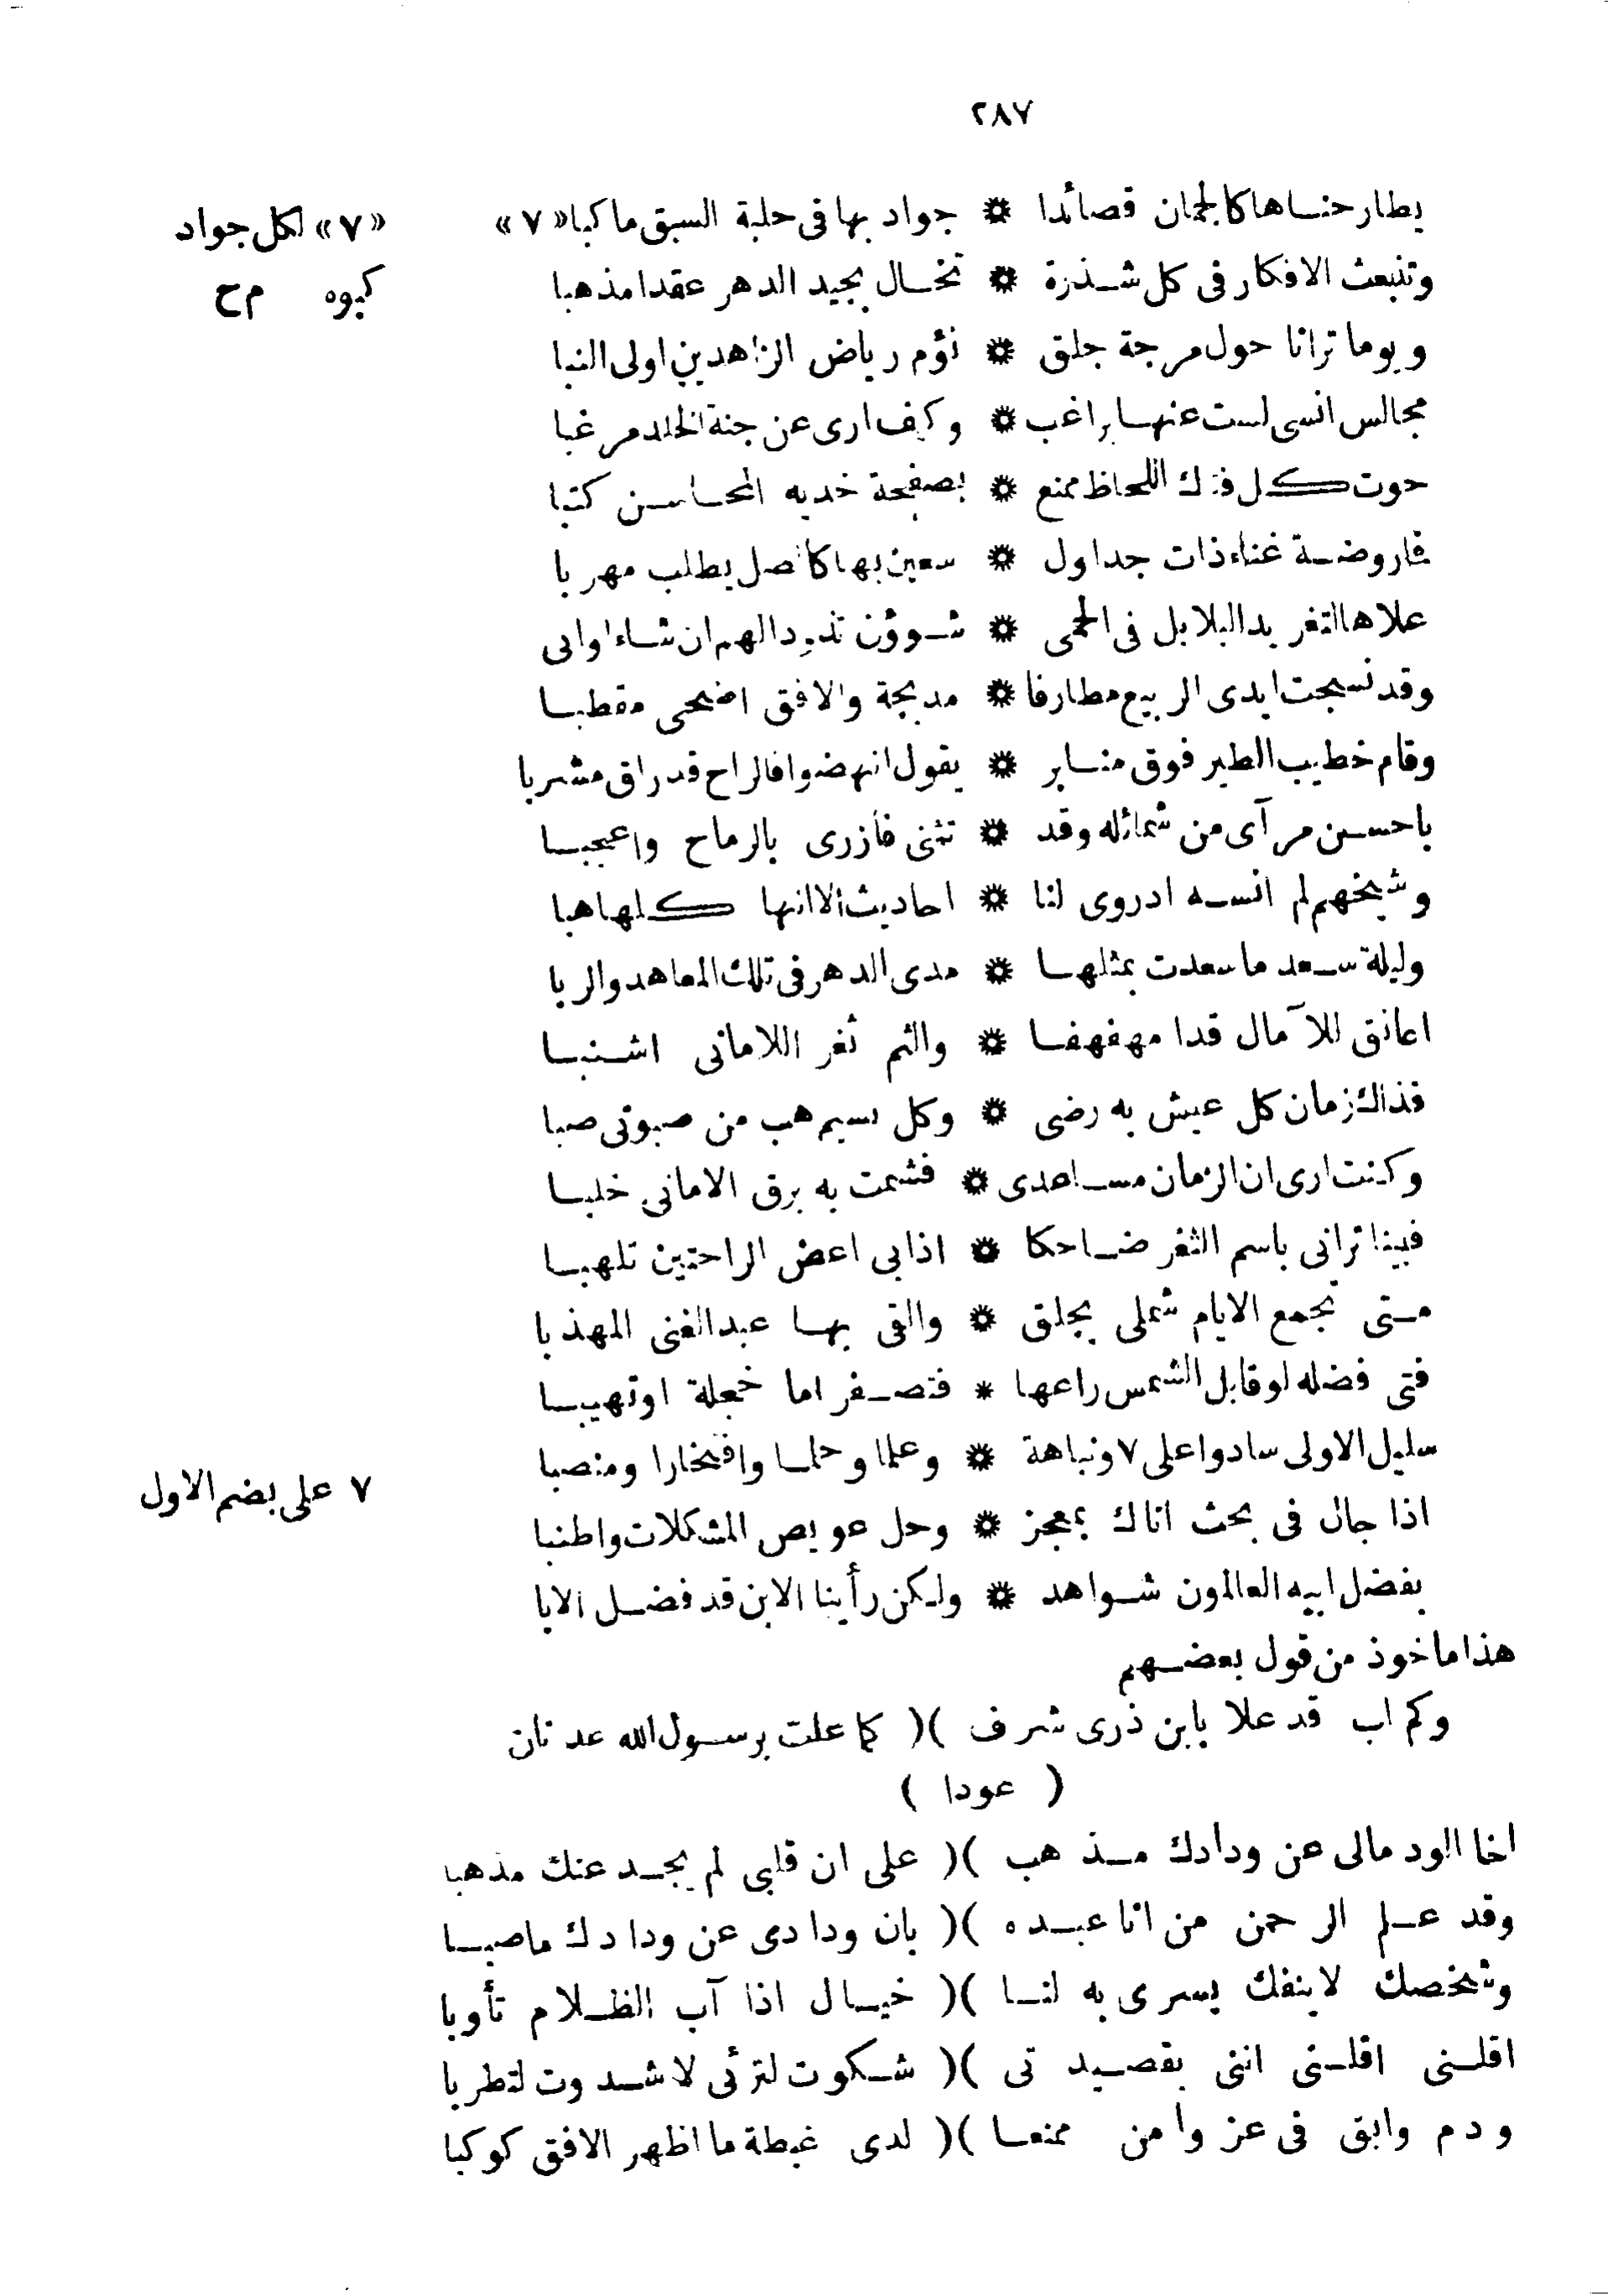 ٢٨٧
يطارحناها كالجمان قصائدا * جواد بها فى حلبة السبق ما كبا «٧»
«٧» لكل جواد
كبوه م ح
وتنبعث الافكار فى كل شذرة * تخال بجيد الدهر عقدا مذهبا
ويوما ترانا حول مرجة جلق * نؤم رياض الزاهدين اولى النبا
مجالس انسى لست عنها براغب * وكيف ارى عن جنة الخلد مرغبا
حوت كل فتاك اللحاظ ممنع * بصفحة خديه المحاسن كتبا
فما روضة غناء ذات جداول * سعين بها كالصل يطلب مهربا
علاها التغريد البلابل فى الحمى * شوؤن تذود الهم ان شاء او ابى
وقد نسجت ايدى الربيع مطارفا * مدبجة والافق اضحى مقطبا
وقام خطيب الطير فوق منابر * يقول انهضوا فالراح قد راق مشربا
باحسن مرآى من شمائله وقد * تثنى فأزرى بالرماح واعجبا
وشيخهم لم انسه اذ روى لنا * احاديث الا انها كلها هبا
وليلة سعد ما سعدت بمثلها * مدى الدهر فى تلك المعاهد والربا
اعانق للآمال قدا مهفهفا * والثم ثغر اللامانى اشنبا
فذاك زمان كل عيش به رضى * وكل نسيم هب من صبوتى صبا
وكنت ارى ان الزمان مساعدى * فشمت به برق الامانى خلبا
فبينا ترانى باسم الثغر ضاحكا * اذابى اعض الراحتين تلهبا
متى تجمع الايام شملى بجلق * والقى بها عبد الغنى المهذبا
فتى فضله لو قابل الشمس راعها * فتصفر اما خجلة او تهيبا
سليل الاولى سادوا على ٧ ونباهة * وعلما وحلما وافتخارا ومنصبا
٧ على بضم الاول
اذا جال فى بحث اتاك بمعجز * وحل عويص المشكلات واطنبا
بفضل ابيه العالمون شواهد * ولكن رأينا الابن قد فضل الابا
هذا ماخوذ من قول بعضهم
وكم اب قد علا بابن ذرى شرف )( كما علت برسول الله عدنان
( عودا )
اخا الود مالى عن ودادك مذهب )( على ان قلبى لم يجد عنك مذهبا
وقد علم الرحمن من انا عبده )( بان ودادى عن ودادك ما صبا
وشخصك لا ينفك يسرى به لنا )( خيال اذا آب الظلام تأوبا
اقلنى اقلنى اننى بقصيدتى )( شكوت لترثى لا شدوت لتطربا
ودم وابق فى عز وأمن ممنعا )( لدى غبطة ما اظهر الافق كوكبا